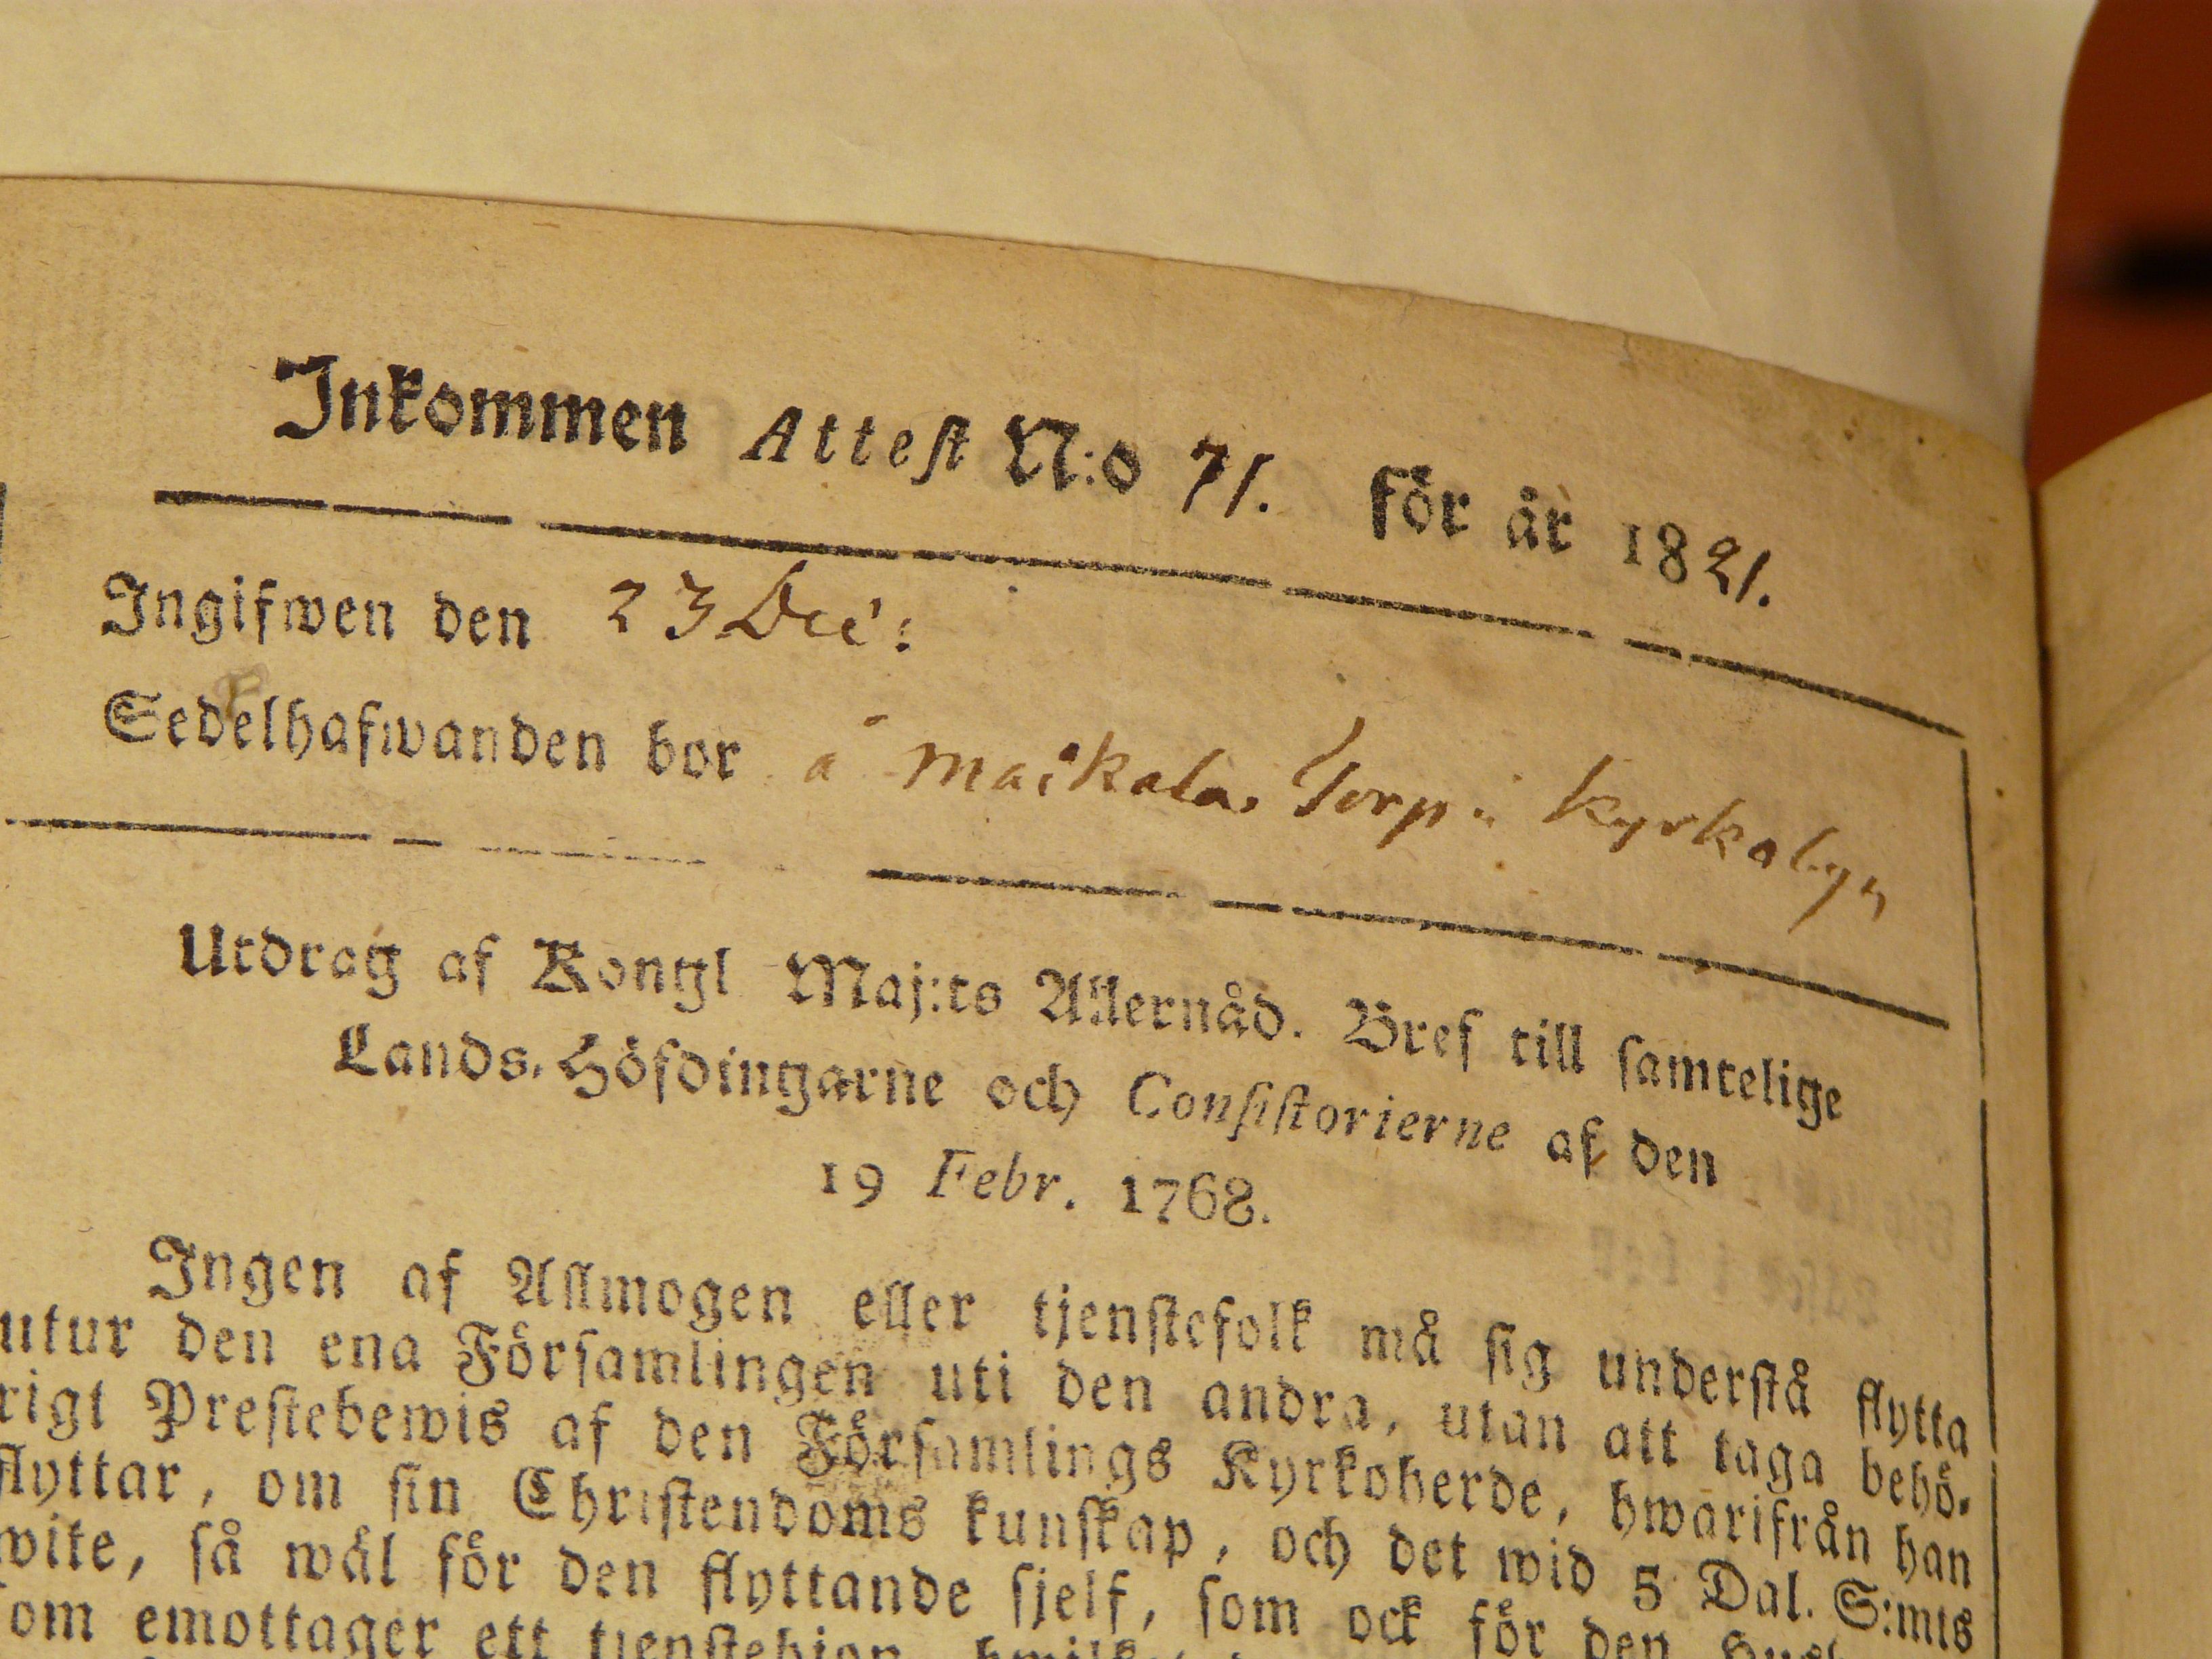 Inkommen Attest N:o 71. för år 1821.
Ingifwen den 23 Dec:
Sedelhafwanden bor å Maikala Torp i Kyrkobyn
Utdrag af Kongl Maj:ts Allernåd. Bref till samtelige
Lands-Höfdingarne och Consistorierne af den
19 Febr. 1768.
Ingen af Allmogen eller tjenstefolk må sig understå flytta
utur den ena Församlingen uti den andra, utan att taga behö-
rigt Prestebewis af den Församlings Kyrkoherde, hwarifrån han
flyttar, om sin Christendoms kunskap, och det wid 5 Dal. S:mts
wite, så wäl för den flyttande sjelf, som ock för den
som emottager ett tjenstehjon